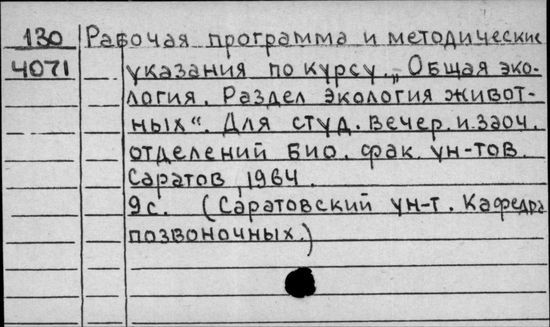 130 Рабочая программа и методические
4071 указания по курсу „Общая эко-
логия. Раздел экология живот-
ных“. Для студ. вечер. и заоч.
отделений био. фак. ун-тов.
Саратов, 1964.
9с. (Саратовский ун-т. Кафедра
позвоночных.)